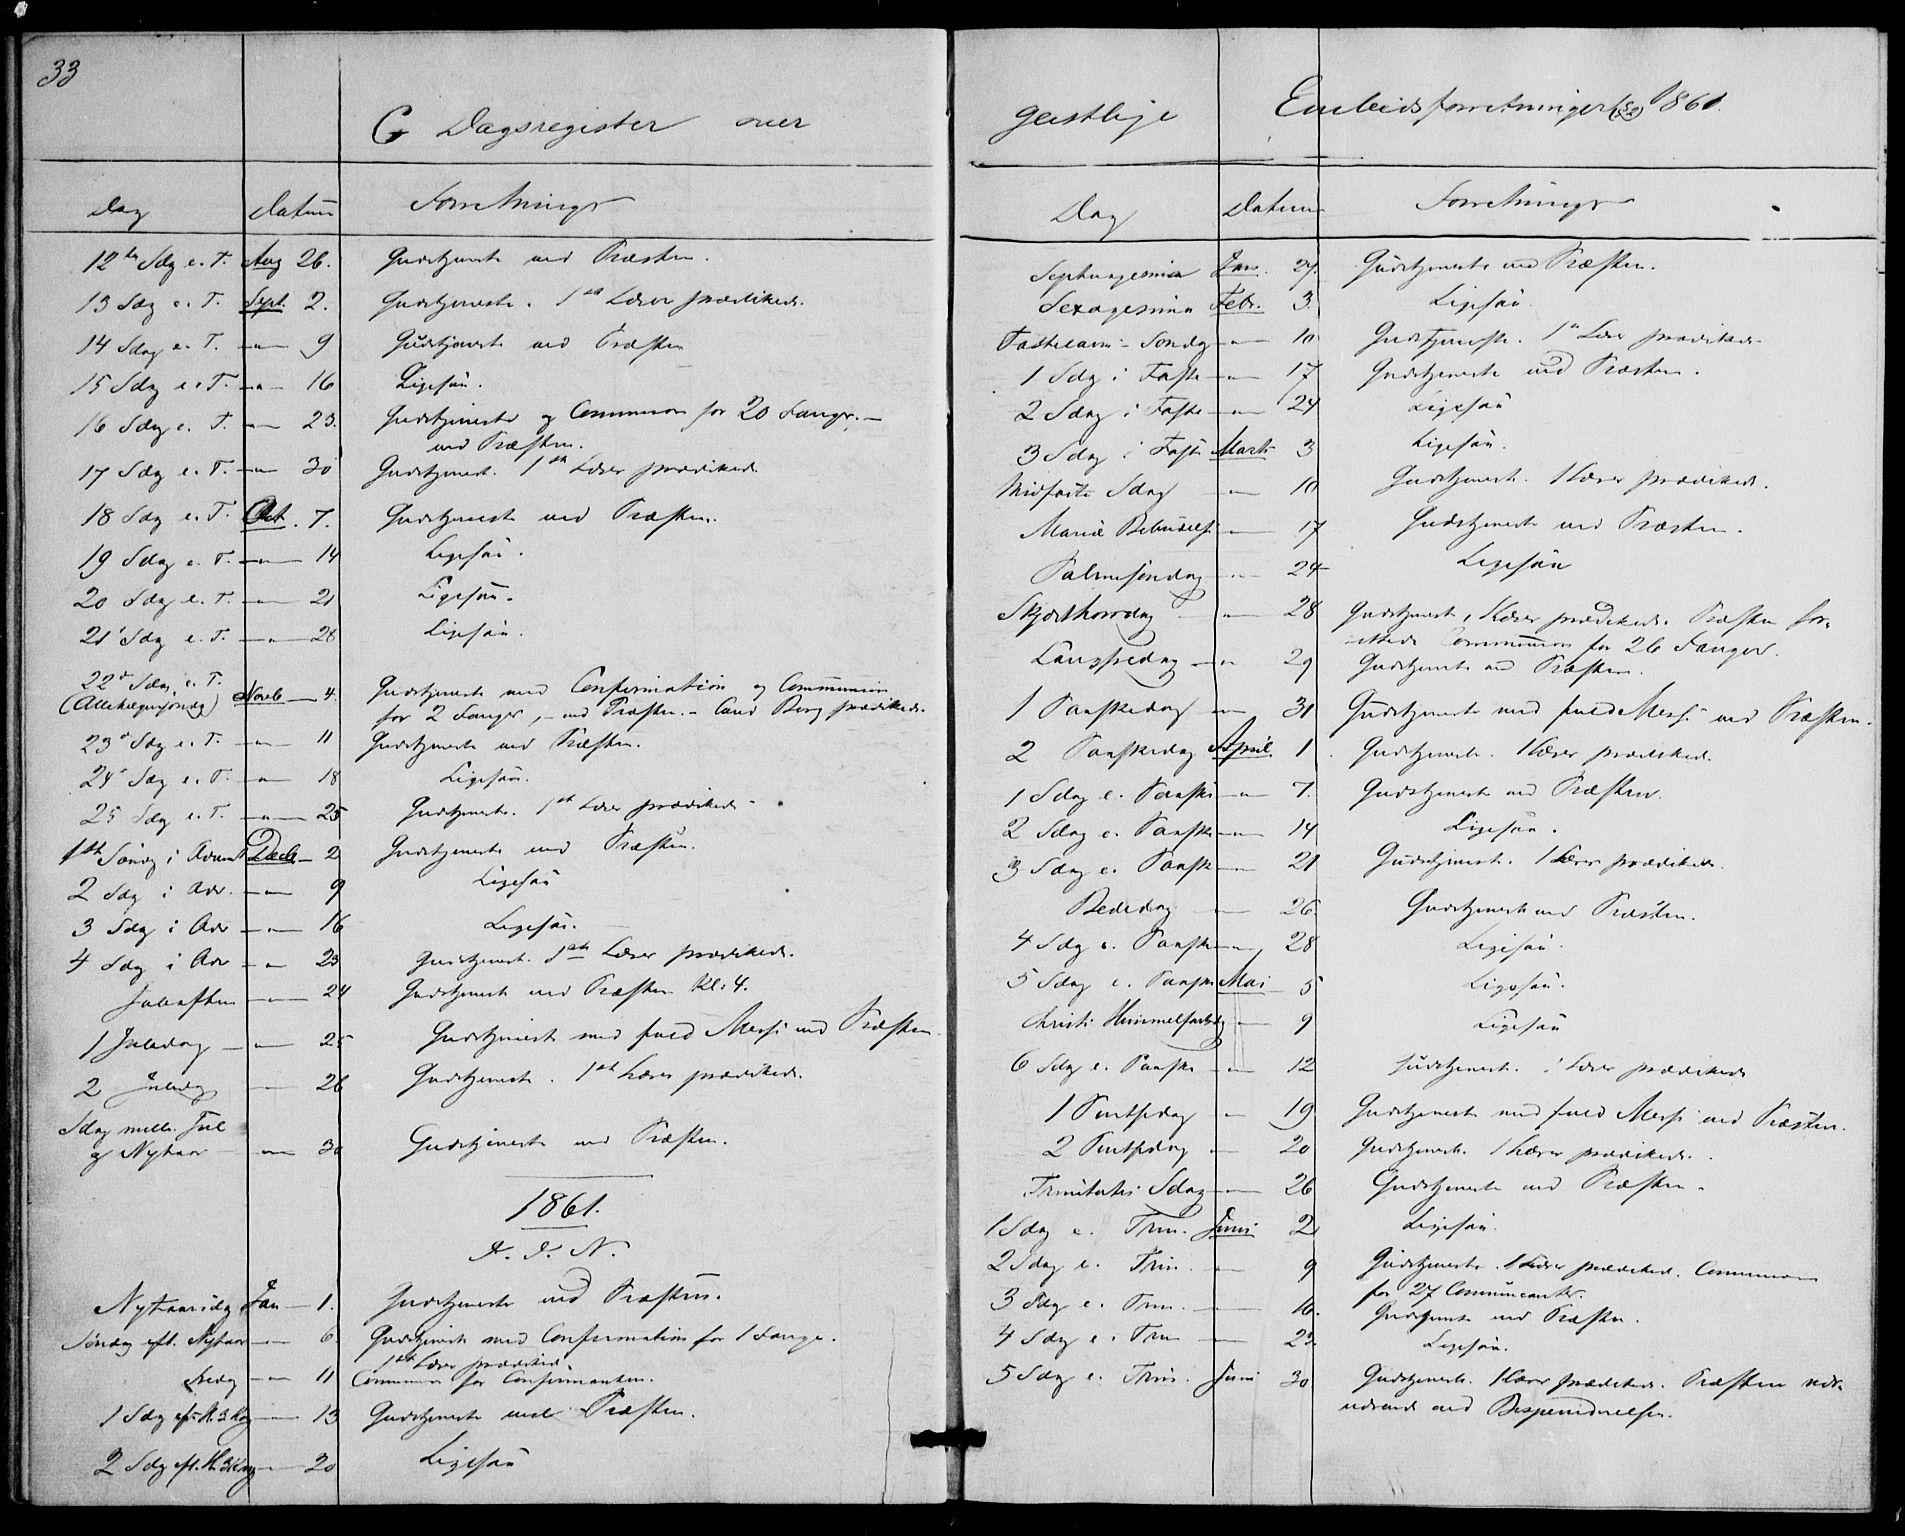 33
G Dagsregister over
Dag Datum Forretninger
12te Sdg e. T. Aug 26. Gudstjeneste ved Præsten.
13 Sdg e. T. Sept. 2. Gudstjeneste. 1ste Lærer prædikede.
14 Sdag e. T. —"— 9 Gudstjeneste ved Præsten
15 Sdg e. T. —"— 16 Ligesaa.
16 Sdag e. T. —"— 23. Gudstjeneste og Communion for 20 Fanger. —
ved Præsten.
17 Sdg e. T. —"— 30 Gudstjenest. 1ste Lærer prædikede.
18 Sdg e. T. Oct. 7. Gudstjeneste ved Præsten.
19 Sdag e. T. —"— 14 Ligesaa.
20 Sdag e. T. —"— 21 Ligesaa.
21 Sdg e. T. —"— 28 Ligesaa.
22d Sdag e. T.
(Allehelgensøndg) Novb — 4. Gudstjeneste med Confirmation og Communion
for 2 Fanger, — ved Præsten. — Cand Berg prædikede.
23d Sdg e. T. —"— 11 Gudstjeneste ved Præsten.
24d Sdg e. T. —"— 18 Ligesaa.
25 Sdg e. T. —"— 25 Gudstjeneste. 1ste Lærer prædikede.
1ste Søndg i Advent Decb — 2 Gudstjeneste ved Præsten.
2 Sdg i Adv. —"— 9 Ligesaa
3 Sdag i Adv —"— 16 Ligesaa.
4 Sdag i Adv —"— 23 Gudstjenest. 1ste Lærer prædikede.
Juleaften —"— 24 Gudstjeneste ved Præsten Kl. 4.
1 Juledag —"— 25 Gudstjeneste med fuld Messe ved Præsten
2 Juledag —"— 26 Gudstjeneste. 1ste Lærer prædikede.
Sdag mell. Jul
og Nytaar —"— 30 Gudstjeneste ved Præsten.
1861.
I. J. N.
Nytaarsdag Jan — 1. Gudstjeneste ved Præsten.
Søndag eft. Nytaar —"— 6. Gudstjeneste med Confirmation for 1 Fange.
1ste Lærer prædiked.
Fredg —"— 11 Communion for Confirmanten.
1 Sdg eft. H. 3 Kong —"— 13 Gudstjeneste ved Præsten.
2 Sdg eft. H. 3 Kong —"— 20 Ligesaa
geistlige Embedsforretninger 1861.
Dag Datum Forretninger
Septuagesima Jan. 27. Gudstjeneste ved Præsten.
Sexagesima Febr. 3. Ligesaa
Fastelavns-Søndg —"— 10 Gudstjeneste. 1ste Lærer prædikede
1 Sdg i Faste —"— 17 Gudstjeneste ved Præsten.
2 Sdag i Faste —"— 24 Ligesaa
3 Sdag i Faste Marts 3 Ligesaa.
Midfaste Sdag —"— 10 Gudstjenest. 1 Lærer prædikede.
Mariæ Bebudelse —"— 17 Gudstjeneste ved Præsten.
Palmesøndag —"— 24 Ligesaa
Skjærthorsdag —"— 28 Gudstjenest, 1 Lærer prædikede. Præsten for-
rettede Communion for 26 Fanger.
Langfredag —"— 29 Gudstjeneste ved Præsten.
1 Paaskedag —"— 31 Gudstjeneste med fuld Messe ved Præsten.
2 Paaskedag April 1. Gudstjeneste. 1 Lærer prædikede.
1 Sdag e. Paaske —"— 7. Gudstjeneste ved Præsten.
2 Sdag e. Paaske —"— 14 Ligesaa.
3 Sdag e. Paaske —"— 21 Gudstjenest. 1 Lærer prædikede.
Bededag —"— 26. Gudstjeneste ved Præsten.
4 Sdg e. Paaske —"— 28 Ligesaa.
5 Sdag e. Paaske Mai 5 Ligesaa.
Christi Himmelfartsdg —"— 9 Ligesaa
6 Sdag e. Paaske —"— 12 Gudstjenest. 1 Lærer prædikede
1 Pintsedag —"— 19 Gudstjeneste med fuld Messe ved Præsten.
2 Pintsedag —"— 20 Gudstjeneste. 1 Lærer prædikede.
Trinitatis Sdag —"— 26 Gudstjeneste ved Præsten.
1 Sdag e. Trin. Juni 2 Ligesaa.
2 Sdag e. Trin. —"— 9 Gudstjeneste. 1 Lærer prædiked. Communion
for 27 Communicanter.
3 Sdag e. Trin. —"— 16. Gudstjeneste ved Præsten.
4 Sdag e. Trin —"— 23. Ligesaa.
5 Sdag e. Trin. Juni 30 Gudstjenest. 1 Lærer prædikede. Præsten
ved Bispevielsen.